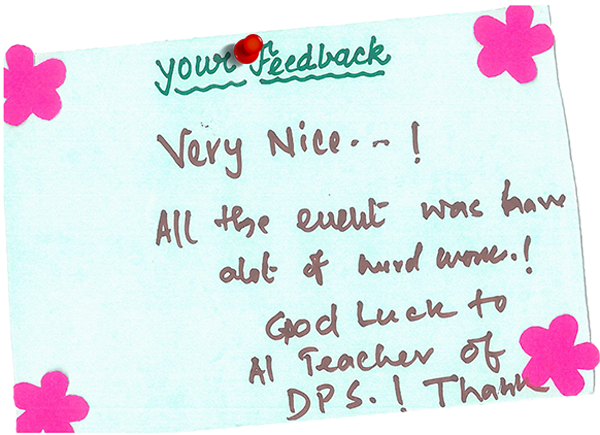 Your Feedback
Very Nice...!
All the event was have
alot of hard work.!
Good Luck to
Al Teacher of
DPS.! Thank